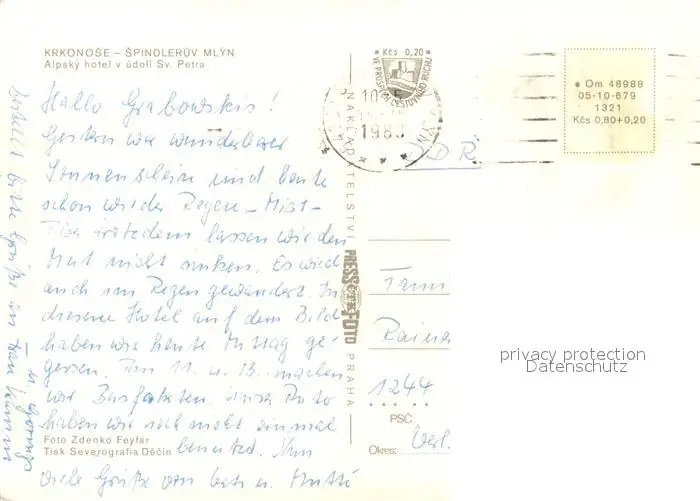 KRKONOŠE – ŠPINDLERŮV MLÝN
Alpský hotel v údolí Sv. Petra
Hallo Grabowskis!
Gestern war wunderbarer
Sonnenschein und heute
schon wieder Regen – Mist –
Aber trotzdem lassen wir den
Mut nicht sinken. Es wird
auch im Regen gewandert. In
diesem Hotel auf dem Bild
haben wir heute Mittag ge-
gessen. Am 11. u. 13. machen
wir Busfahrten. Unser Auto
haben wir noch nicht einmal
benutzt. Nun
viele Grüße von u. Mutti
bitte Grüße an Frau
Foto Zdenko Feyfar
Tisk Severografia Děčín
NAKLADATELSTVÍ
PRESSFOTO
PRAHA
Kčs 0,20
VE PROSPĚCH CESTOVNÍHO RUCHU
10
1983
Om 48988
05-10-679
1321
Kčs 0,80+0,20
DDR
Fam
Raine
1244
PSČ
Okres:
privacy protection
Datenschutz